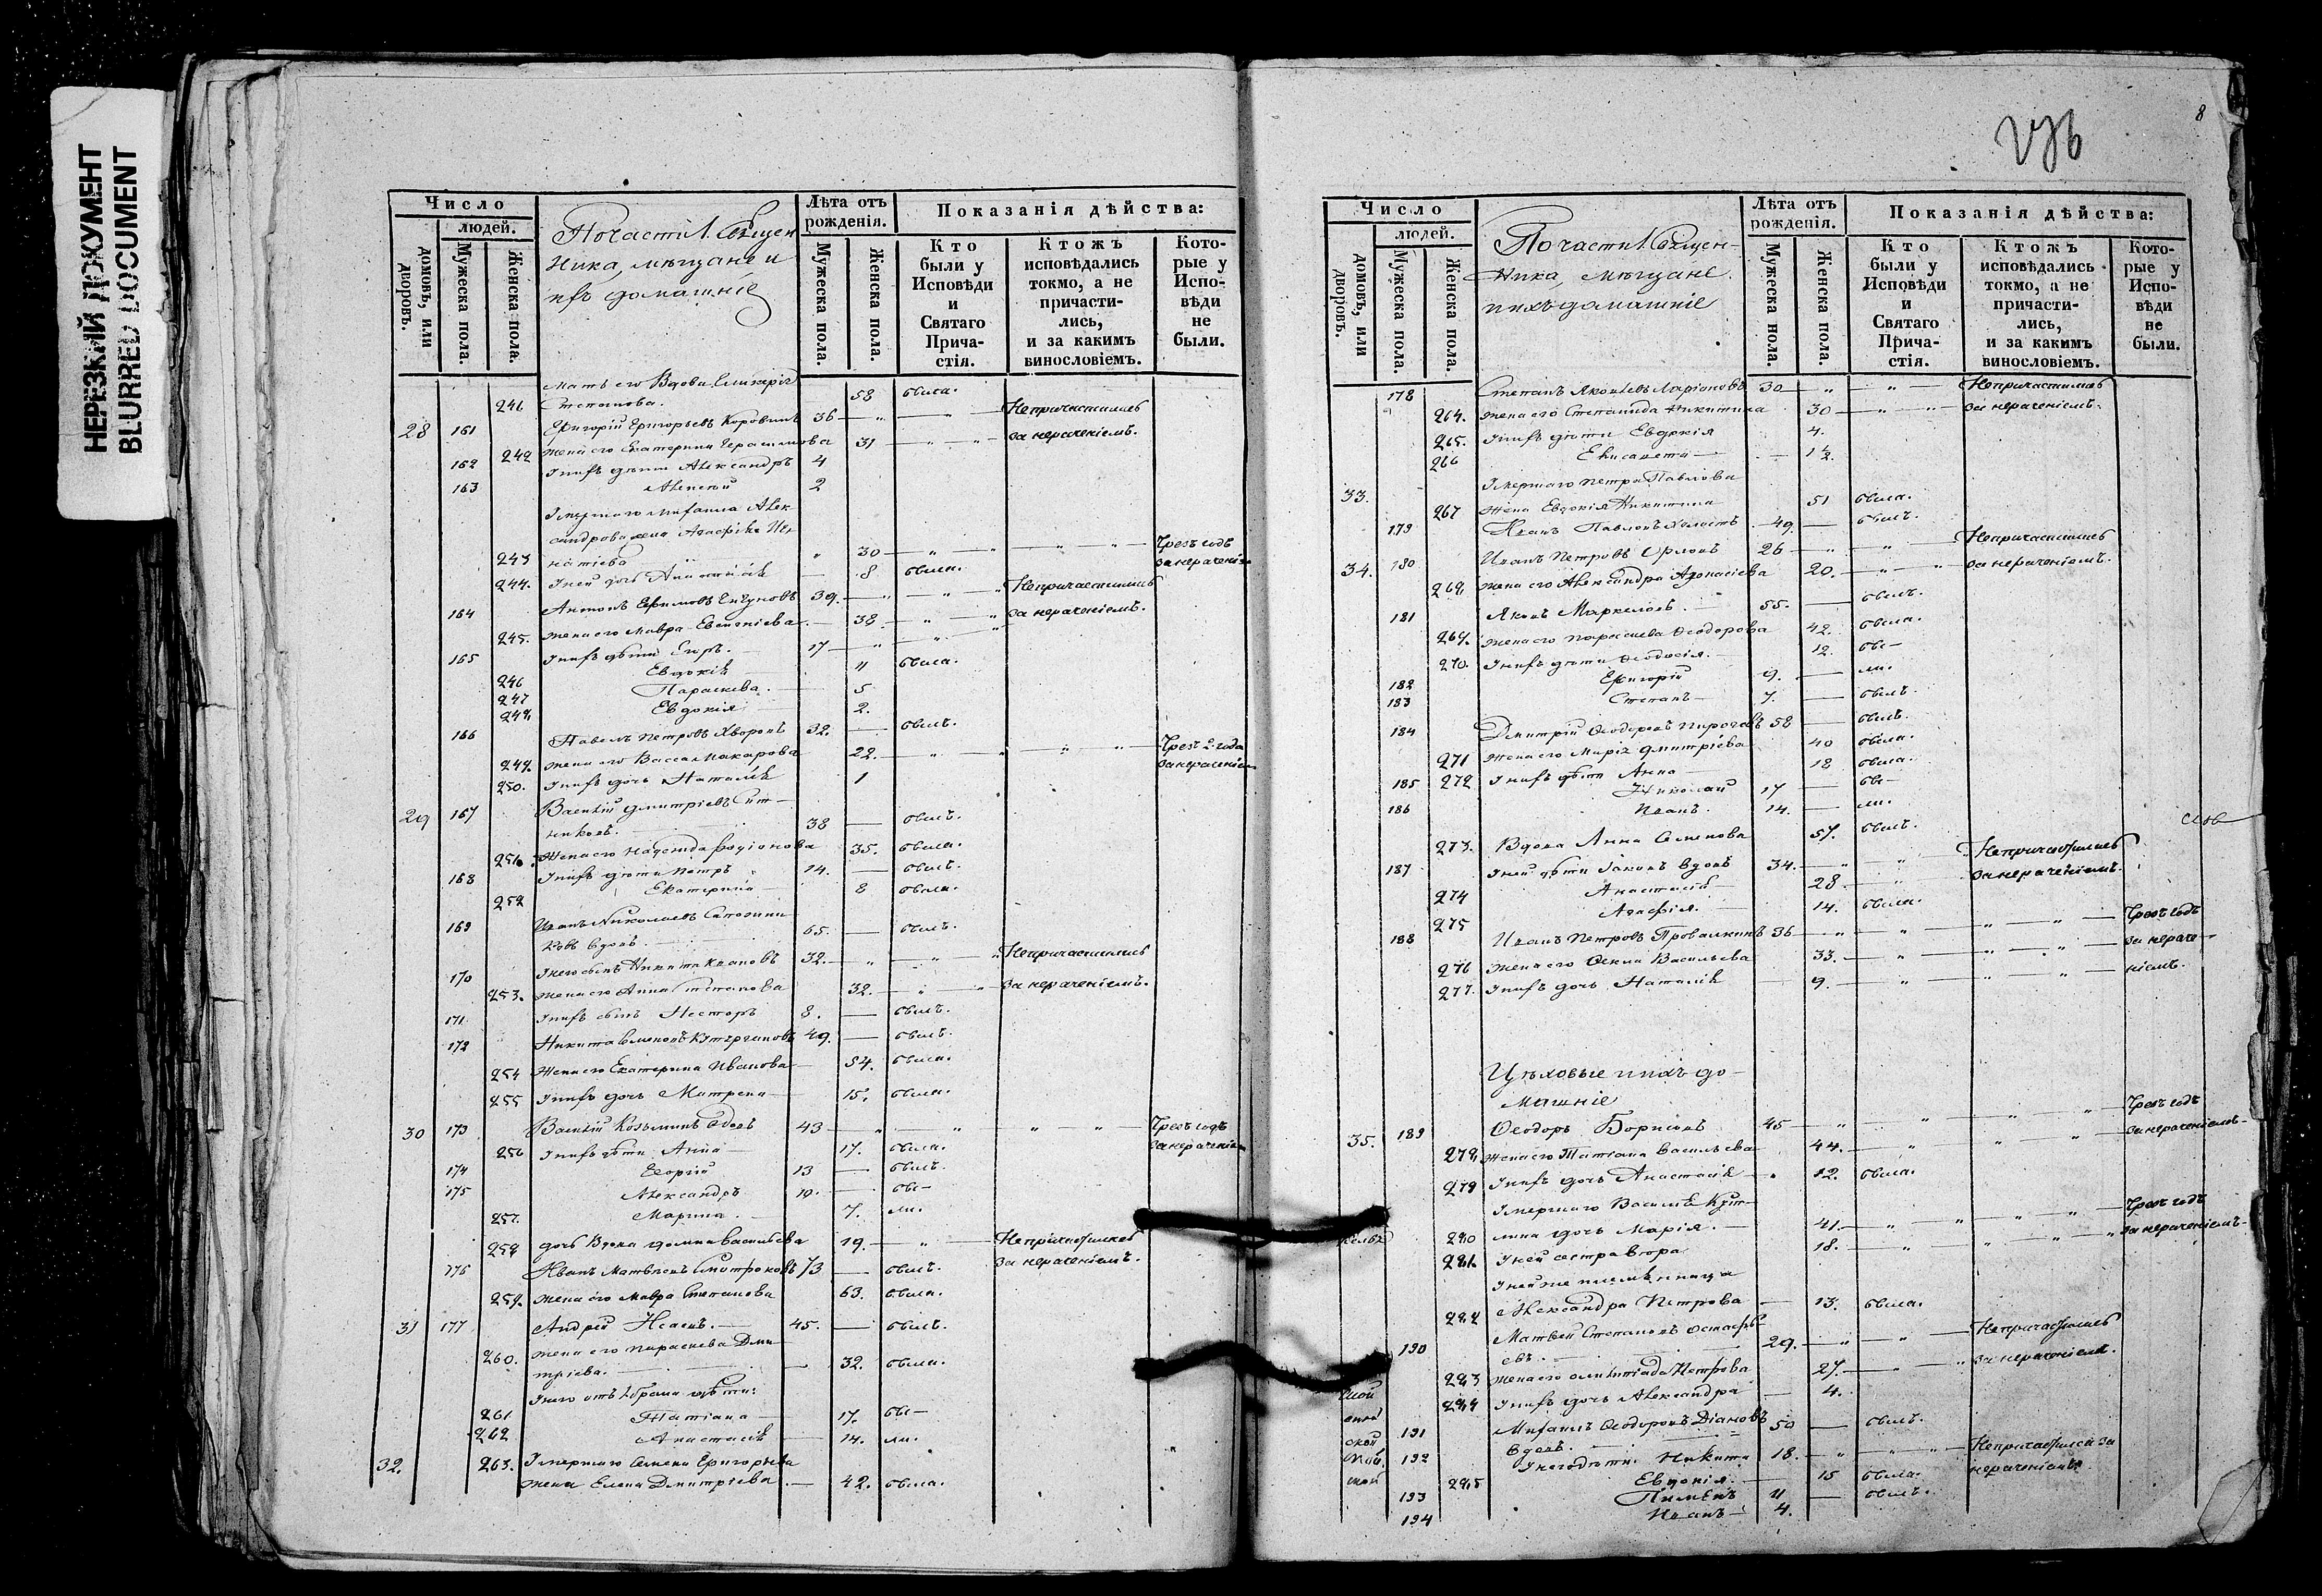 НЕРЕЗКИЙ ДОКУМЕНТ
BLURRED DOCUMENT
Число
людей.
домовъ, или дворовъ.
Мужеска пола.
Женска пола.
По части 1. Священ
ника, мѣщане и
ихъ домашніе
Лѣта отъ рожденія.
Мужеска пола.
Женска пола.
Показанія дѣйства:
Кто были у Исповѣди и Святаго Прича-стія.
Ктожъ исповѣдались токмо, а не причасти-лись, и за какимъ винословіемъ.
Кото-рые у Испо-вѣди не были.
мать его Вдова Гликерія
241 Степанова. 58 была.
28 161 Григорій Григорьевъ Коровинъ 36 Непричастились
242 Жена его Екатерина Герасимова 31 за нераченіемъ.
162 Ихъ дѣти Александръ 4
163 Алексѣй 2
Умершаго Михаила Алек
сандрова жена Агафія Иг
243 натіева 30 Чрезъ годъ
244. дочь Анастасія 8 была. за нераченіе
164 Антонъ Ефимовъ 39. Непричастились
245. Жена его Мавра Евгеніева 38 за нераченіемъ.
165 Ихъ дѣти 17
246 Евдокія 11 была.
247 Параскева. 5
248 Евдокія 2.
166 Павелъ Петровъ Хворовъ 32. былъ.
249. Жена его Васса Макарова 22. Чрезъ 2 года
250. Ихъ дочь Наталія 1 за нераченіем
29 167 Василій Дмитріевъ Сит-
никовъ. 38 былъ.
251. Жена его Надежда Родіонова 35. была.
168 Ихъ дѣти Петръ 14. былъ.
252 Екатерина 8 была.
169 Иванъ Николаевъ Сапожни
ковъ вдовъ. 65. былъ.
170 Его сынъ Никита Ивановъ 32. Непричастились
253. Жена его Анна Степанова 32. за нераченіемъ.
171 Ихъ сынъ Несторъ 8. былъ.
172 Никита Семеновъ 49. былъ.
254 Жена его Екатерина Иванова 54. была.
255 Ихъ дочь Матрена 15. была.
30 173 Василій Козьминъ вдовъ 43 Чрезъ годъ
256 Ихъ дѣти Анна 17. была. за нераченіем
174 Георгій 13 былъ.
175 Александръ 10. бы-
257. Марина. 7. ли.
258 дочь Вдова Домна Васильева 19. Непричастилась
176 Иванъ Матвѣевъ 73 былъ. за нераченіемъ.
259. Жена его Мавра Степанова 63. была.
31 177 Андрей Исаевъ. 45. былъ.
260. Жена его Параскева Дми
тріева. 32. была.
дѣти:
261 Татіана 17. бы-
262 Анастасія 14. ли.
32. 263. Умершаго Семена Григорьева
Жена Елена Дмитріева 42. была.
8
Число
людей.
домовъ, или дворовъ.
Мужеска пола.
Женска пола.
По части 1. Священ-
ника, мѣщане
и ихъ домашніе
Лѣта отъ рожденія.
Мужеска пола.
Женска пола.
Показанія дѣйства:
Кто были у Исповѣди и Святаго Прича-стія.
Ктожъ исповѣдались токмо, а не причасти-лись, и за какимъ винословіемъ.
Кото-рые у Испо-вѣди не были.
178 Степанъ Яковлевъ Ларіоновъ 30 Непричастились
264. Жена его Степанида Никитина 30 за нераченіемъ.
265. Ихъ дѣти Евдокія 4.
266 Елисавета 1½.
33. Умершаго Петра Павлова
267 Жена Евдокія Никитина 51 была.
179 Иванъ Павловъ Холостъ 49. былъ.
34. 180 Иванъ Петровъ Орловъ 26 Непричастились
268. Жена его Александра Афанасіева 20. за нераченіемъ.
181 Яковъ Маркеловъ. 55. былъ.
269. Жена его Параскева Ѳеодорова 42. была.
270. Ихъ дѣти Ѳеодосія. 12. бы-
182 Григорій 9. ли.
183 Степанъ 7. былъ.
184 Дмитрій Ѳеодоровъ Пироговъ 58 былъ.
271 Жена его Марія Дмитріева 40 была.
272 Ихъ дѣти Анна 18 была.
185 Николай 17 бы-
186 Иванъ. 14. ли.
273. Вдова Анна Семенова 57. былъ.
187 дѣти Іаковъ вдовъ 34. Непричастились
274 Анастасія 28. за нераченіемъ.
275 Агафія. 14. была.
188 Иванъ Петровъ Провалкинъ 36 Чрезъ годъ
276 Жена его Ѳекла Васильева 33. за нераче-
277. Ихъ дочь Наталія 9. ніемъ.
Цѣховые и ихъ до-
машніе
35. 189 Ѳеодоръ Борисовъ 45 Чрезъ годъ
278. Жена его Татіана Васильева 44. за нераченіемъ.
279 Ихъ дочь Анастасія 12. была.
Умершаго Василія
280 дочь Марія. 41. Чрезъ годъ
281. сестра Вѣра 18. за нераченіемъ.
племянница
282 Александра Петрова 13. была.
190 Матвей Степановъ Остафь-
евъ. 29. Непричастились
283 Жена его Олимпіада Петрова 27. за нераченіемъ.
284 Ихъ дочь Александра 4.
191 Михаилъ Ѳеодоровъ Діановъ 50 былъ.
вдовъ.
192 Его дѣти Никита 18. Непричастился за
285 Евдокія. 15 была. нераченіемъ.
193 Пименъ 11 былъ.
194 Иванъ 4.